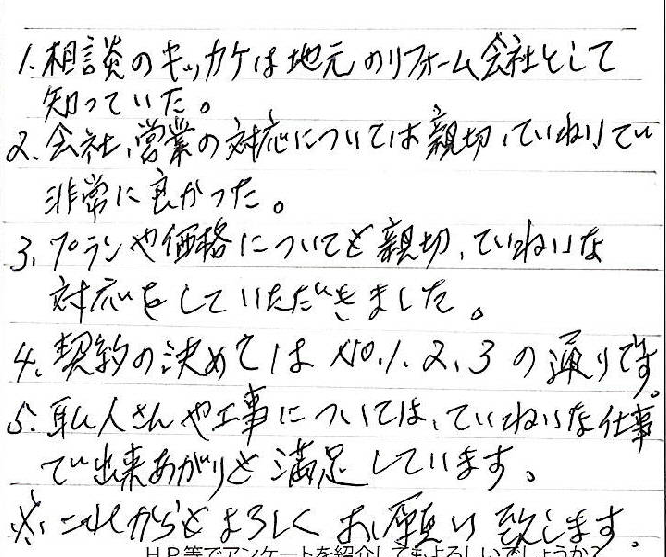 1. 相談のキッカケは地元のリフォーム会社として
知っていた。
2. 会社、営業の対応については親切、ていねいでい
非常に良かった。
3. プランや価格についても親切、ていねいな
対応をしていただきました。
4. 契約の決めては No.1.2.3の通りです。
5. 職人さんや工事については、ていねいな仕事
で出来あがりも満足しています。
※ これからもよろしくお願い致します。
HP等でアンケートを紹介してもよろしいでしょうか?